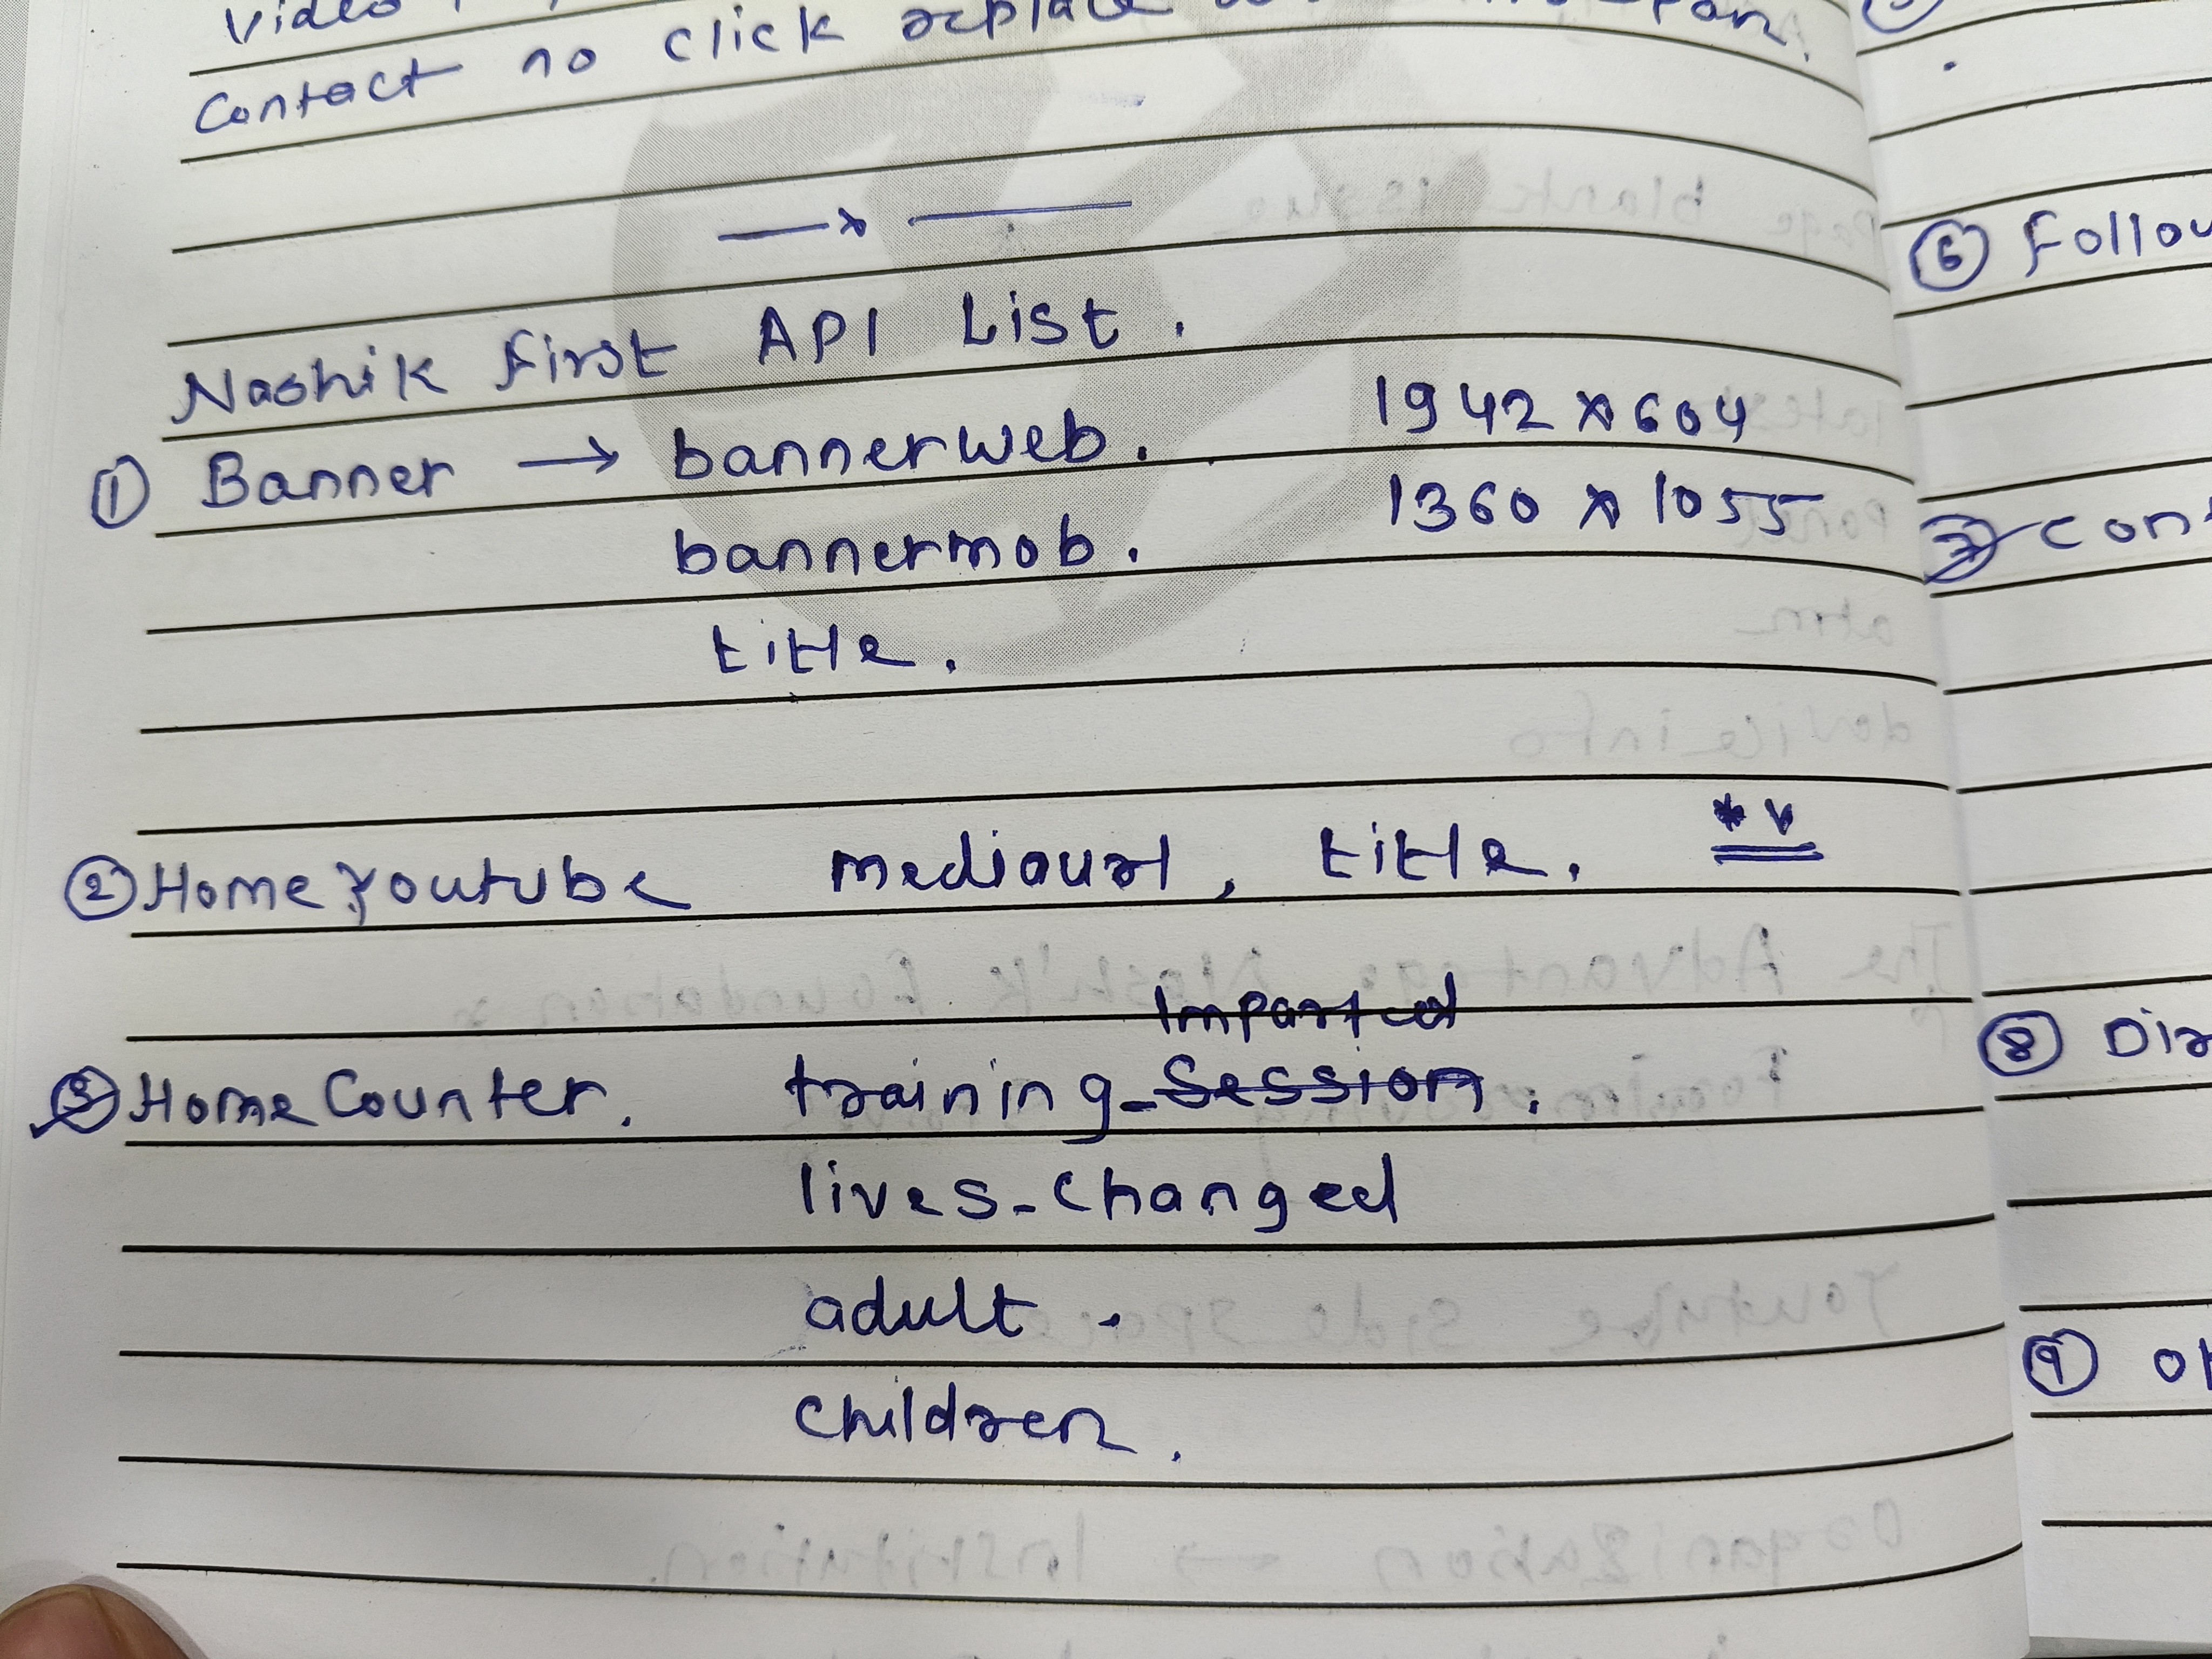 Video
Contact no click replace
Nashik First API List.
① Banner → bannerweb. 1942 x 604
bannermob. 1360 x 1055
title.
② HomeYoutube mediaurl, title.
Imparted
③ HomeCounter. training_Session.
lives_changed
adult.
children.
⑥ Follow
⑦ Con
⑧ Dir
⑨